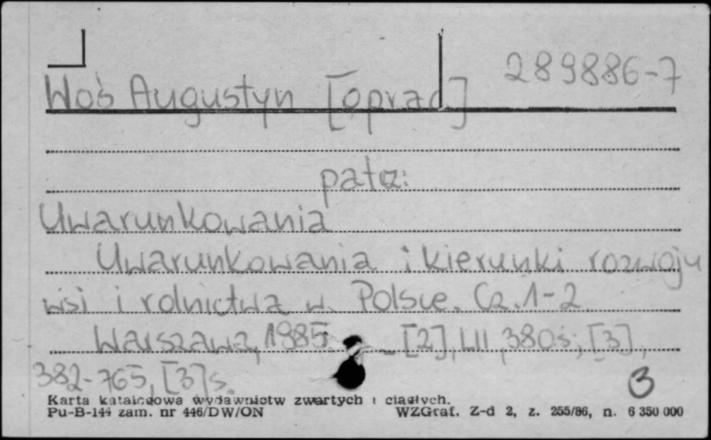 289886-7
Woś Augustyn [oprac]
patrz:
Uwarunkowania
Uwarunkowania i kierunki rozwoju
wsi i rolnictwa w Polsce. Cz. 1-2
Warszawa, 1985. - [2], LII, 380 s; [3],
382-765, [3] s.
3
Karta katalogowa wydawnictw zwartych i ciągłych.
Pu-B-144 zam. nr 446/DW/ON WZGraf. Z-d 2, z. 255/86, n. 6 350 000